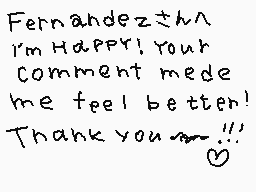 Fernandezさんへ
I'm HAPPY! Your
comment mede
me feel better!
Thank you ~!!!
♡